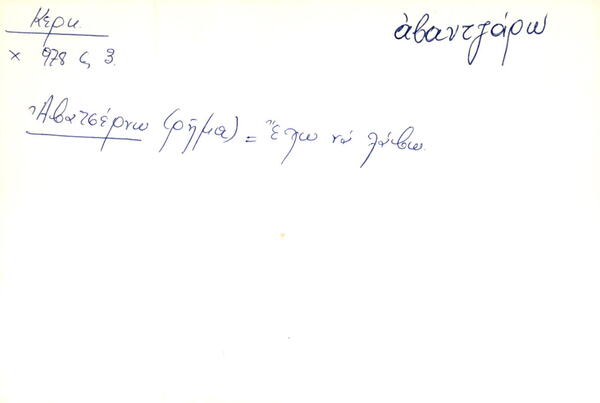 Κερκ.
ἀβαντζάρω
× 978 ς, 3.
Ἀβατσέρνω (ρῆμα) = Ἔχω νά λάβω.